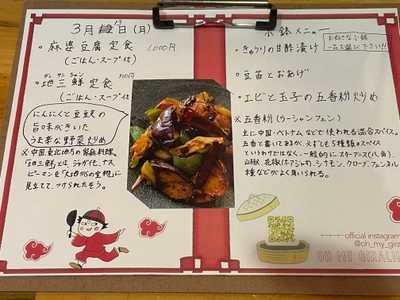 3月 日(月)
・麻婆豆腐定食 1,000円
(ごはん・スープ付)
・地三鮮定食
(ごはん・スープ付)
にんにくと豆豉の
旨味がきいた
うま辛な野菜炒め
※中国東北地方の家庭料理、
「地三鮮」とは、ジャガイモ、ナス、
ピーマンを「大地からの宝物」に
見立てて、つけられたそう。
小鉢メニュー
・きゅうりの甘酢漬け
・豆苗とおあげ
・エビと玉子の五香粉炒め
※五香粉(ウーシャンフェン)
主に中国・ベトナムなどで使われる混合スパイス。
五香と書いてあるが、必ずしも5種類のスパイス
というわけではなく、一般的にスターアニス(八角)、
山椒、花椒(ホアジャオ)、シナモン、クローブ、フェンネル
陳皮などがよく用いられる。
official instagram
@oh_my_gira
OH MY GIRALI